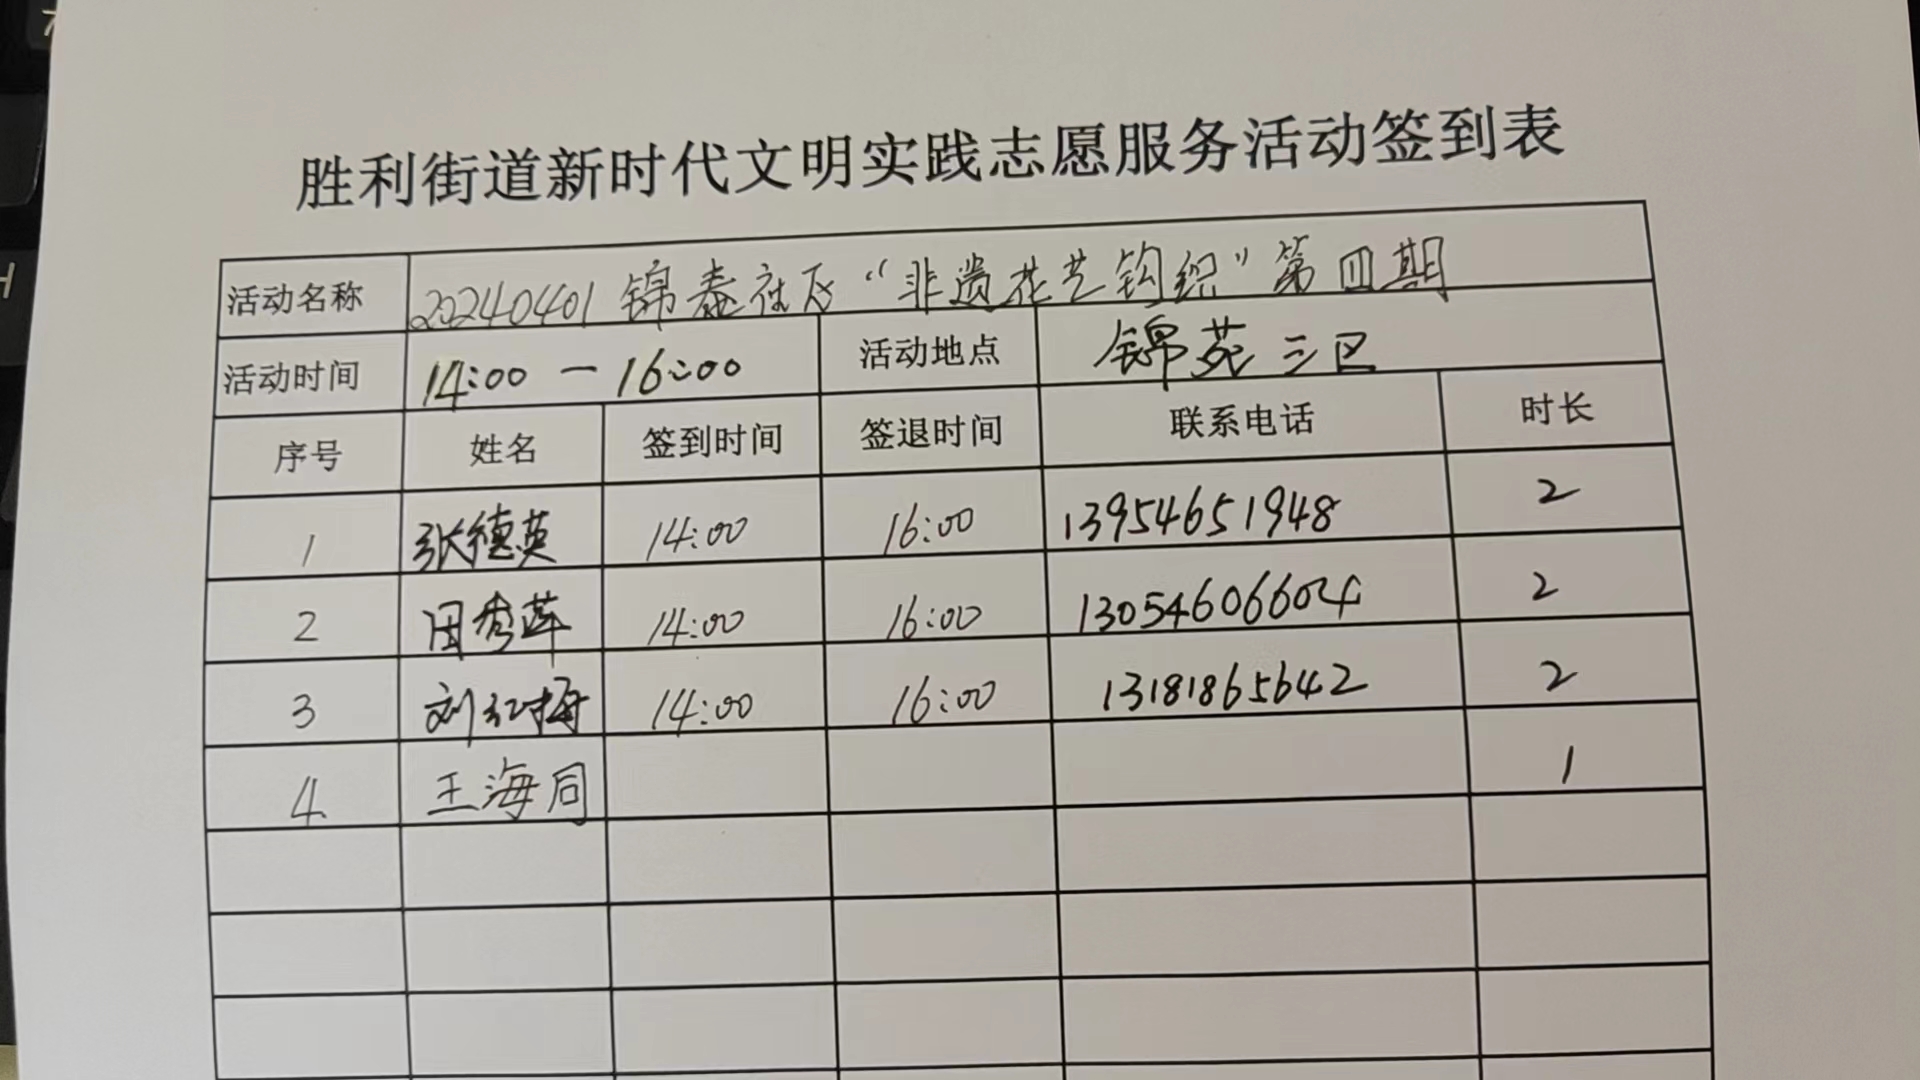 胜利街道新时代文明实践志愿服务活动签到表
活动名称 20240401 锦泰社区“非遗花艺钩织”第四期
活动时间 14:00 — 16:00 活动地点 锦苑三区
序号 姓名 签到时间 签退时间 联系电话 时长
1 张德英 14:00 16:00 13954651948 2
2 田秀莲 14:00 16:00 13054606604 2
3 刘红梅 14:00 16:00 13181865642 2
4 王海同 1